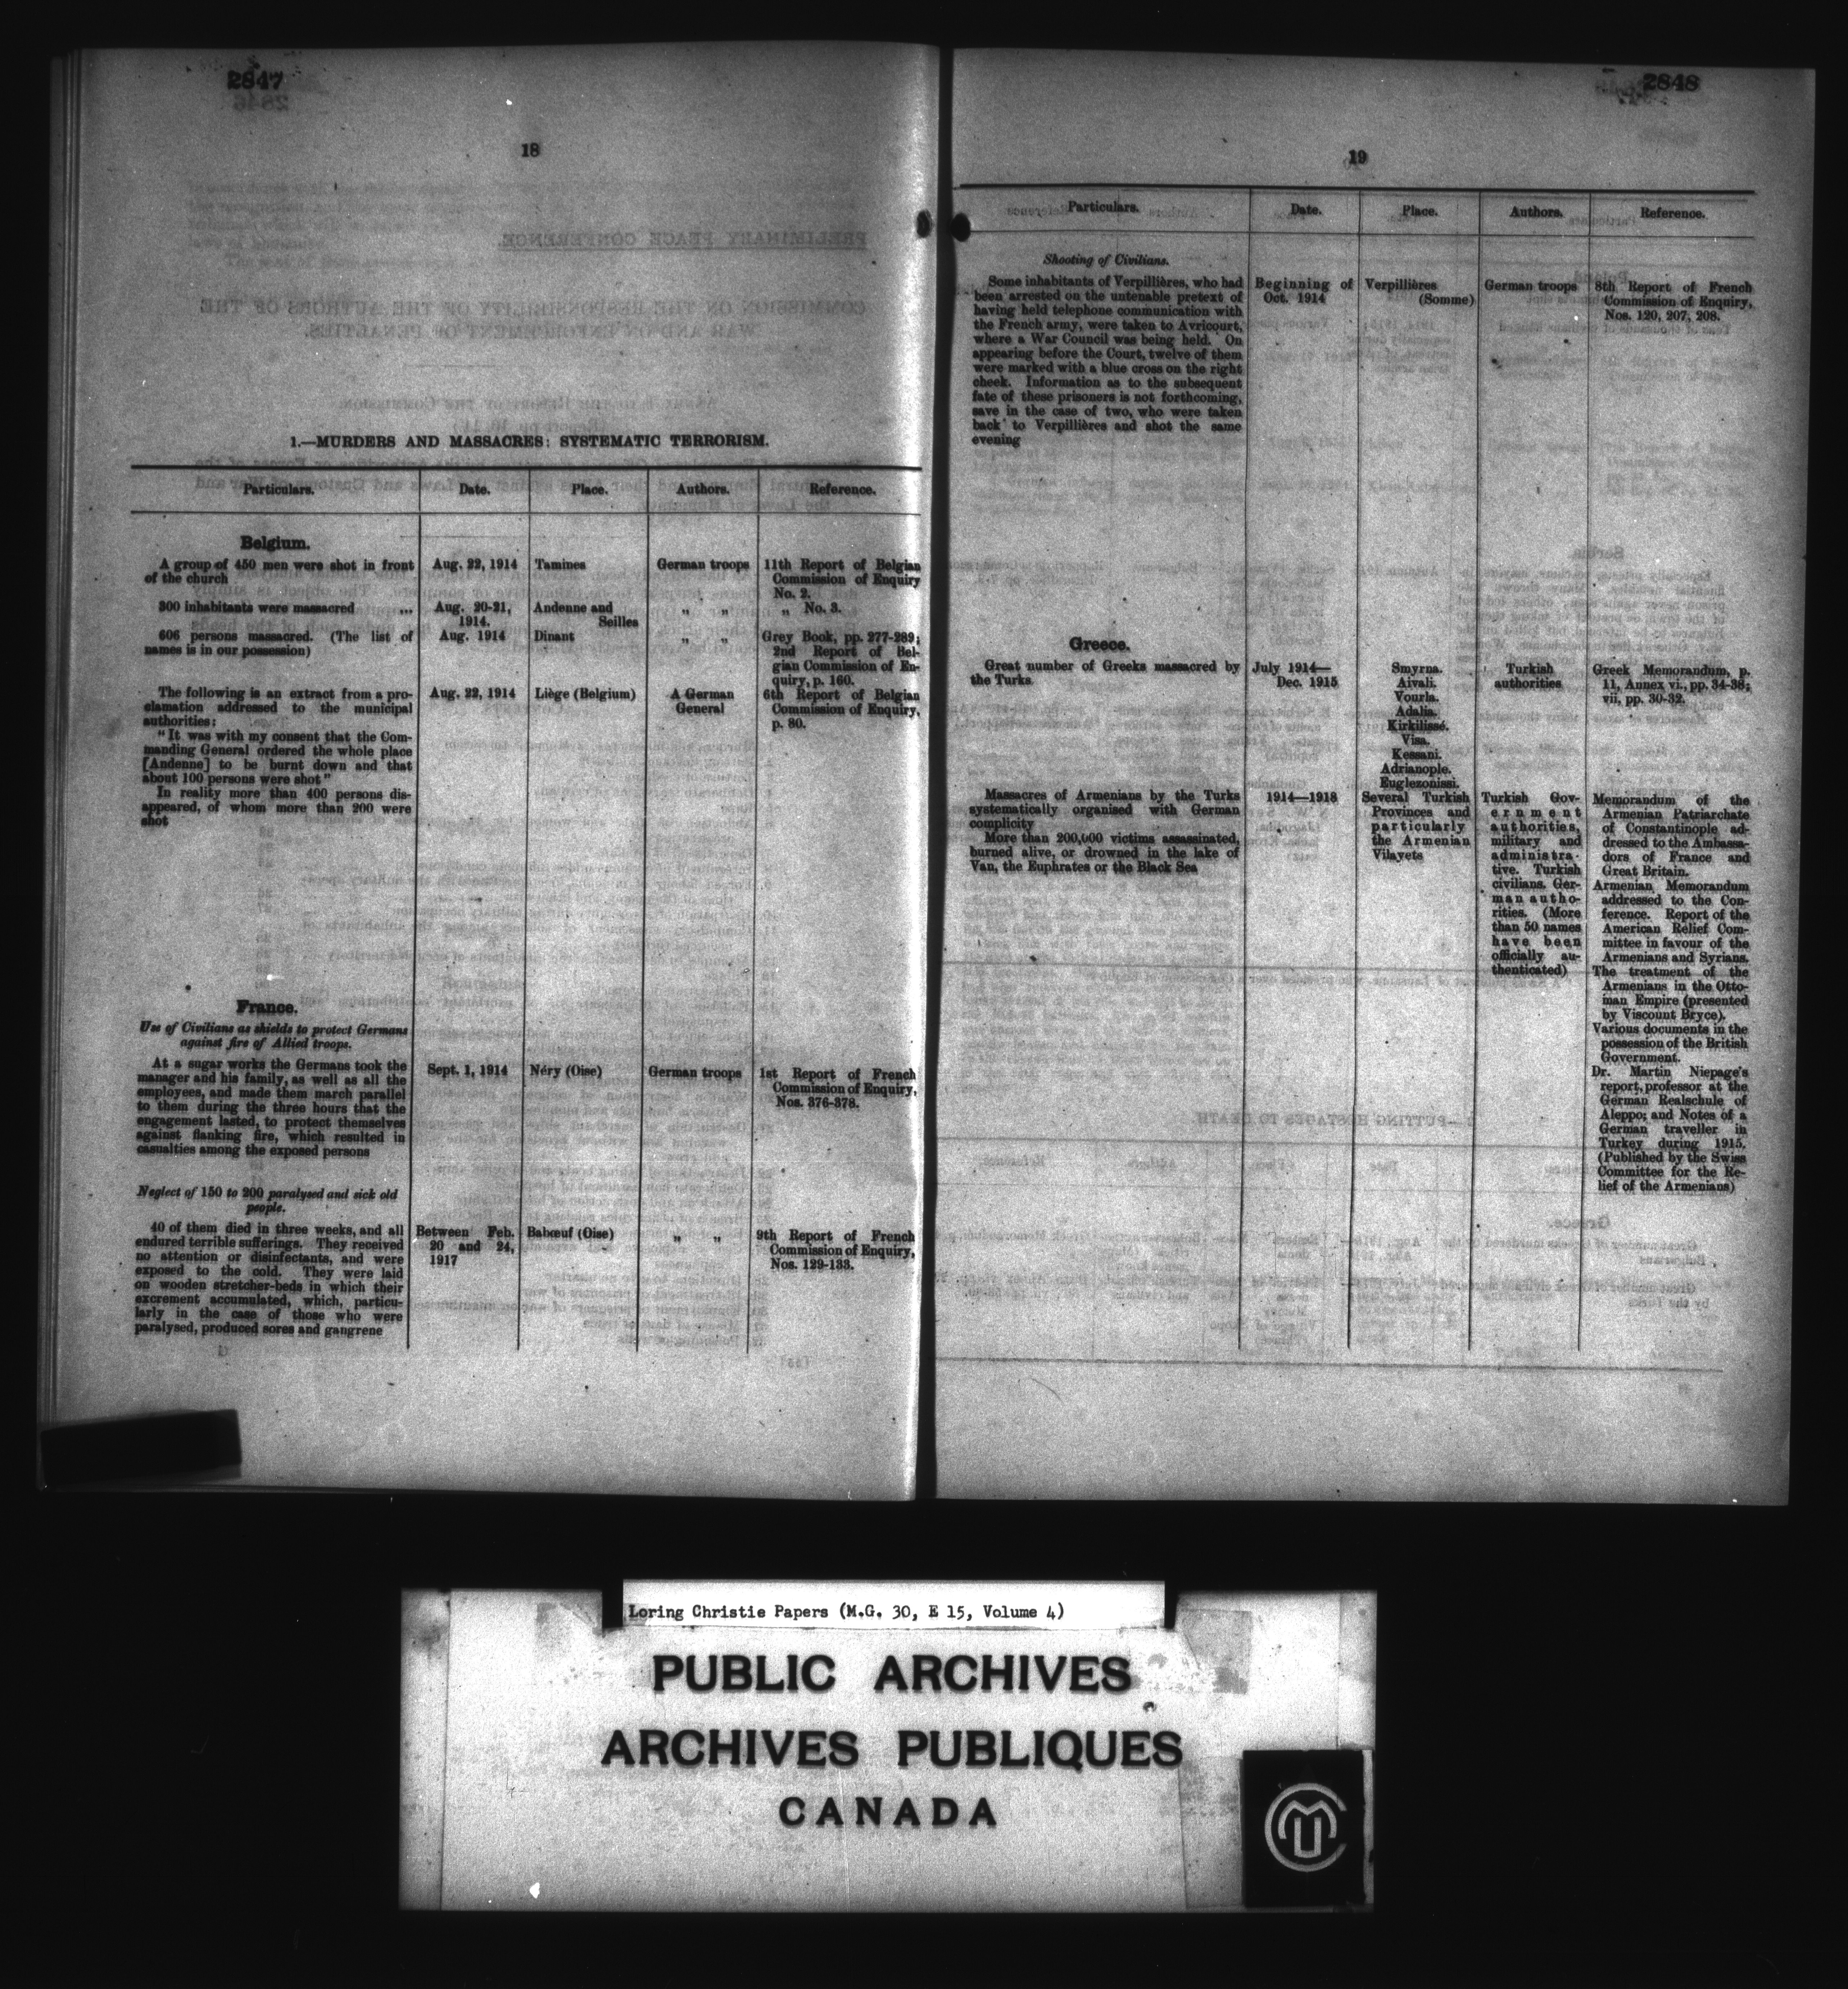 2847
18
1.—MURDERS AND MASSACRES: SYSTEMATIC TERRORISM.
Particulars.
Date.
Place.
Authors.
Reference.
Belgium.
A group of 450 men were shot in front
of the church
Aug. 22, 1914
Tamines
German troops
11th Report of Belgian
Commission of Enquiry
No. 2.
300 inhabitants were massacred ...
Aug. 20-21,
1914.
Andenne and
Seilles
„ „
„ No. 3.
606 persons massacred. (The list of
names is in our possession)
Aug. 1914
Dinant
„ „
Grey Book, pp. 277-289;
2nd Report of Bel-
gian Commission of En-
quiry, p. 160.
The following is an extract from a pro-
clamation addressed to the municipal
authorities:
"It was with my consent that the Com-
manding General ordered the whole place
[Andenne] to be burnt down and that
about 100 persons were shot"
In reality more than 400 persons dis-
appeared, of whom more than 200 were
shot
Aug. 22, 1914
Liège (Belgium)
A German
General
6th Report of Belgian
Commission of Enquiry,
p. 80.
France.
Use of Civilians as shields to protect Germans
against fire of Allied troops.
At a sugar works the Germans took the
manager and his family, as well as all the
employees, and made them march parallel
to them during the three hours that the
engagement lasted, to protect themselves
against flanking fire, which resulted in
casualties among the exposed persons
Sept. 1, 1914
Néry (Oise)
German troops
1st Report of French
Commission of Enquiry,
Nos. 376-378.
Neglect of 150 to 200 paralysed and sick old
people.
40 of them died in three weeks, and all
endured terrible sufferings. They received
no attention or disinfectants, and were
exposed to the cold. They were laid
on wooden stretcher-beds in which their
excrement accumulated, which, particu-
larly in the case of those who were
paralysed, produced sores and gangrene
Between Feb.
20 and 24,
1917
Babœuf (Oise)
„ „
9th Report of French
Commission of Enquiry,
Nos. 129-133.
2848
19
Particulars.
Date.
Place.
Authors.
Reference.
Shooting of Civilians.
Some inhabitants of Verpillières, who had
been arrested on the untenable pretext of
having held telephone communication with
the French army, were taken to Avricourt,
where a War Council was being held. On
appearing before the Court, twelve of them
were marked with a blue cross on the right
cheek. Information as to the subsequent
fate of these prisoners is not forthcoming,
save in the case of two, who were taken
back to Verpillières and shot the same
evening
Beginning of
Oct. 1914
Verpillières
(Somme)
German troops
8th Report of French
Commission of Enquiry,
Nos. 120, 207, 208.
Greece.
Great number of Greeks massacred by
the Turks
July 1914—
Dec. 1915
Smyrna.
Aivali.
Vourla.
Adalia.
Kirkilissé.
Visa.
Kessani.
Adrianople.
Euglezonissi.
Turkish
authorities
Greek Memorandum, p.
11, Annex vi., pp. 34-38;
vii, pp. 30-32.
Massacres of Armenians by the Turks
systematically organised with German
complicity
More than 200,000 victims assassinated,
burned alive, or drowned in the lake of
Van, the Euphrates or the Black Sea
1914—1918
Several Turkish
Provinces and
particularly
the Armenian
Vilayets
Turkish Gov-
ernment
authorities,
military and
administra-
tive. Turkish
civilians. Ger-
man autho-
rities. (More
than 50 names
have been
officially au-
thenticated)
Memorandum of the
Armenian Patriarchate
of Constantinople ad-
dressed to the Ambassa-
dors of France and
Great Britain.
Armenian Memorandum
addressed to the Con-
ference. Report of the
American Relief Com-
mittee in favour of the
Armenians and Syrians.
The treatment of the
Armenians in the Otto-
man Empire (presented
by Viscount Bryce).
Various documents in the
possession of the British
Government.
Dr. Martin Niepage's
report, professor at the
German Realschule of
Aleppo; and Notes of a
German traveller in
Turkey during 1915.
(Published by the Swiss
Committee for the Re-
lief of the Armenians)
Loring Christie Papers (M.G. 30, E 15, Volume 4)
PUBLIC ARCHIVES
ARCHIVES PUBLIQUES
CANADA